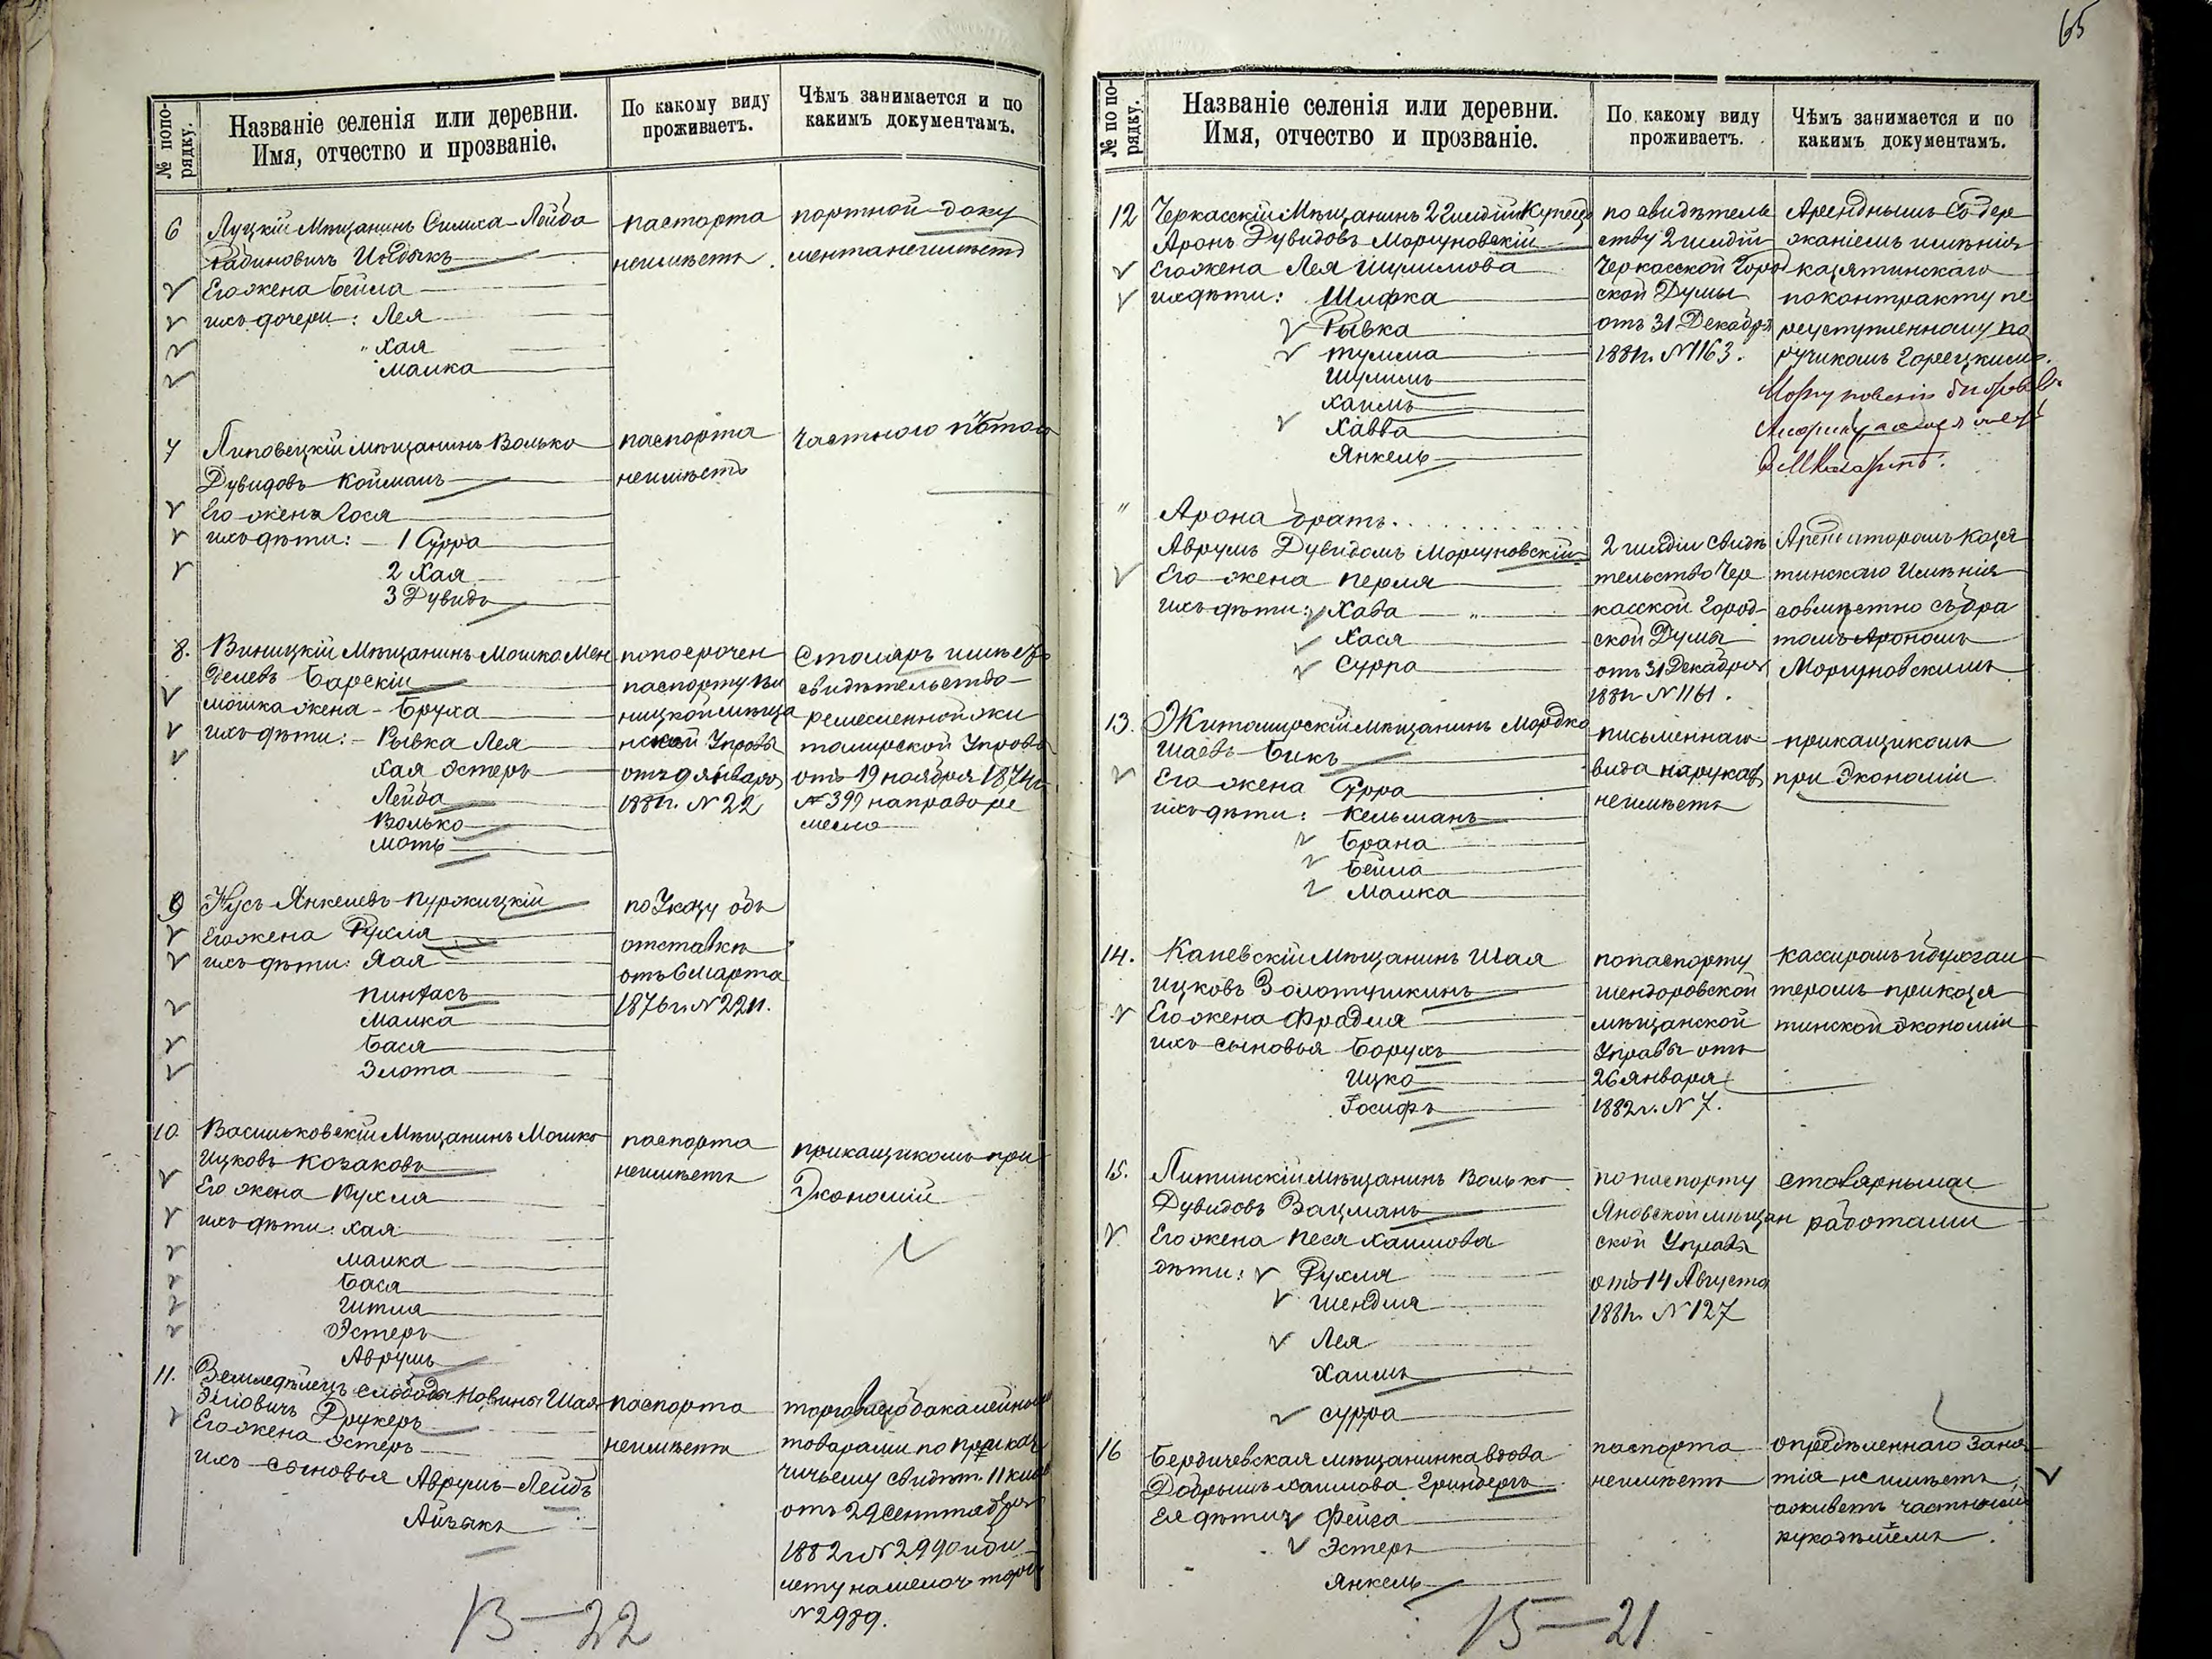 65
№ по по-
рядку.
Названіе селенія или деревни.
Имя, отчество и прозваніе.
По какому виду
проживаетъ.
Чѣмъ занимается и по
какимъ документамъ.
6
Луцкій Мѣщанинъ Симха-Лейба
Рабинович Индыкъ
Его жена Бейла
ихъ дочери: Лея
" Хая
Малка
паспорта
неимѣетъ
портной доку
мента неимѣетъ
7
Липовецкій мѣщанинъ Волько
Дувидовъ Койманъ
Его жена Гося
ихъ дѣти: 1 Сурра
2 Хая
3 Дувидъ
паспорта
неимѣетъ
частного
8.
Виницкій Мѣщанинъ Мошко Мен
делевъ Барскій
Мошка жена - Бруха
ихъ дѣти: - Рывка Лея
Хая Эстеръ
Лейба
Волько
Моть
попосрочен
паспорту Ви
ницкой мѣща
нской Управы
отъ 9 января
1881г. № 22
Столяръ имѣетъ
свидѣтельство
ремесленной жи
томирской Управы
отъ 19 ноября 1874г.
№ 399 направо ре
месло
9
Нусъ Янкелевъ Пурожицкій
Его жена Рухля
ихъ дѣти: Хая
Пинхасъ
Малка
Бася
Злота
по Указу объ
отставкѣ
отъ 6 Марта
1876г. № 2211.
10.
Васильковскій Мѣщанинъ Мошко
Ицковъ Козаковъ
Его жена Рухля
ихъ дѣти: Хая
Малка
Бася
Гитля
Эстеръ
Аврумъ
паспорта
неимѣетъ
прикащикомъ при
Экономіи
11.
Земледѣлецъ слободы Новины Шая
Эліовичъ Друкеръ
Его жена Эстеръ
ихъ сыновья Аврумъ-Лейбъ
Айзыкъ
паспорта
неимѣетъ
бакалейными
товарами по прикащ
чичьему свидѣт. 11 кл
отъ 29 Сентября
1882г. № 2990 и би
лету на мелоч торг
№ 2989.
13-22
№ по по-
рядку.
Названіе селенія или деревни.
Имя, отчество и прозваніе.
По какому виду
проживаетъ.
Чѣмъ занимается и по
какимъ документамъ.
12
Черкасскій Мѣщанинъ 2 гилдіи Купецъ
Аронъ Дувидовъ Моргуновскій
Его жена Лея Шулимова
ихъ дѣти: Шифка
Рывка
Тулма
Шулимъ
Хаимъ
Хавва
Янкель
по свидѣтель
ству 2 гилдіи
Черкасской Горо
ской Думы
отъ 31 Декабря
1881г. № 1163.
Аренднымъ Содер
жаніемъ имѣнія
казятинскаго
по контракту пе
реуступленному по
ручикомъ Горецкимъ.
"
Арона братъ
Аврумъ Дувидомъ Моргуновскій
Его жена Перля
ихъ дѣти: Хава "
Хася
Сурра
2 гилдіи свидѣ
тельство Чер
касской Город-
ской Думы
отъ 31 Декабря
1881г № 1161.
Арендаторомъ Казя
тинскаго Имѣнія
совмѣстно съ бра
томъ Арономъ
Моргуновскимъ
13.
Житомирскій мѣщанинъ Мордко
Шаевъ Бикъ
Его жена Сурра
ихъ дѣти: Кельманъ
Брана
Бейла
Малка
письменнаго
вида на рукахъ
неимѣетъ
прикащикомъ
при Экономіи
14.
Каневскій Мѣщанинъ Шая
Ицковъ Золотушкинъ
Его жена Фрадля
ихъ сыновья Борухъ
Ицко
Іосифъ
попаспорту
шендоровской
мѣщанской
Управы отъ
26 января
1882г. № 7.
Кассиромъ и бухгал
теромъ при казя
тинской экономіи
15.
Литинскій мѣщанинъ Волько
Дувидовъ Вацманъ
Его жена Песя Хаимова
дѣти: Рухля
Шендля
Лея
Хаимъ
Сурра
по паспорту
Яновской мѣщан
ской Управы
отъ 14 Августа
1881г. № 127
столярными
работами
16
Бердичевская мѣщанинка вдова
Добрышъ Хаимова Гринбергъ
Ея дѣти Фейга
Эстеръ
Янкель
паспорта
неимѣетъ
опредѣленнаго заня
тія неимѣетъ,
а живетъ частнымъ
рукодѣліемъ.
15-21